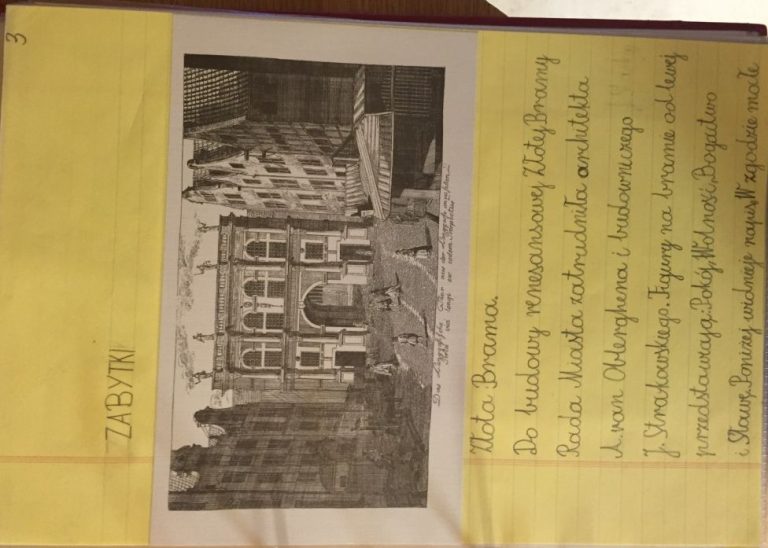 3
ZABYTKI
Das Langgassische
Złota Brama.
Do budowy renesansowej Złotej Bramy
Rada Miasta zatrudniła architekta
A. van Obberghena i budowniczego
J. Strakowskiego. Figury na bramie od lewej
przedstawiają: Pokój, Wolność, Bogactwo
i Sławę. Poniżej widnieje napis, W zgodzie małe